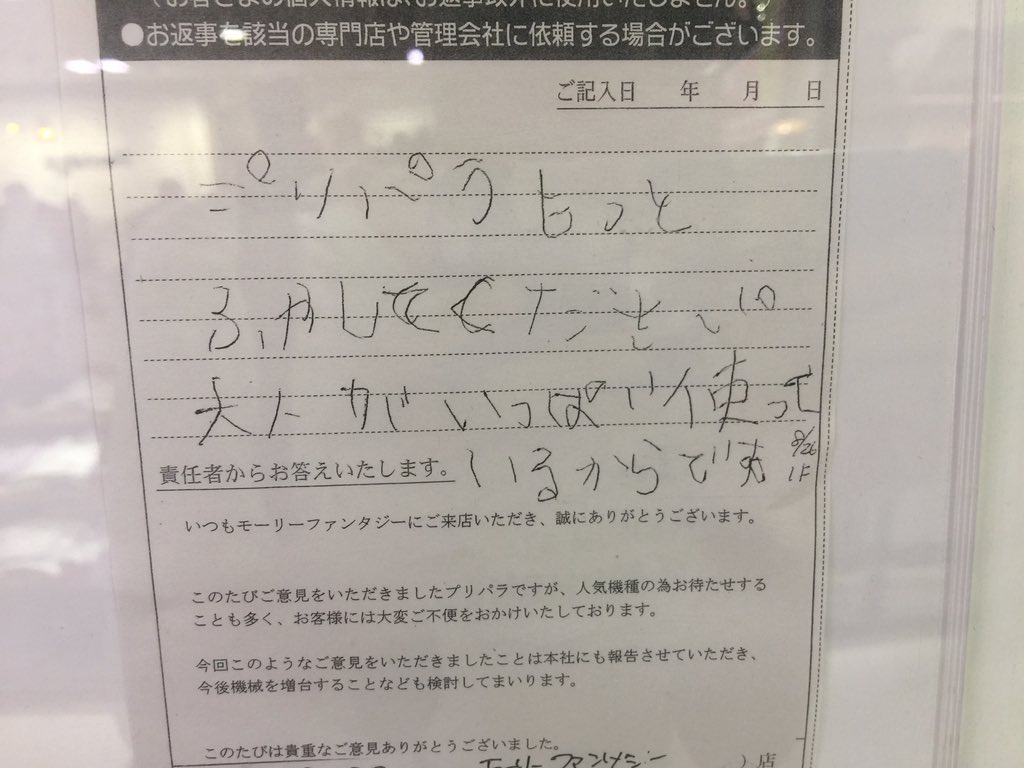 ●お返事を該当の専門店や管理会社に依頼する場合がございます。
ご記入日　年　月　日
プリパラもっと
ふやしてください。
大人がいっぱい使って
いるからです
9/26
1F
責任者からお答えいたします。
いつもモーリーファンタジーにご来店いただき、誠にありがとうございます。
このたびご意見をいただきましたプリパラですが、人気機種の為お待たせする
ことも多く、お客様には大変ご不便をおかけいたしております。
今回このようなご意見をいただきましたことは本社にも報告させていただき、
今後機械を増台することなども検討してまいります。
このたびは貴重なご意見ありがとうございました。
ファンタジー ）店